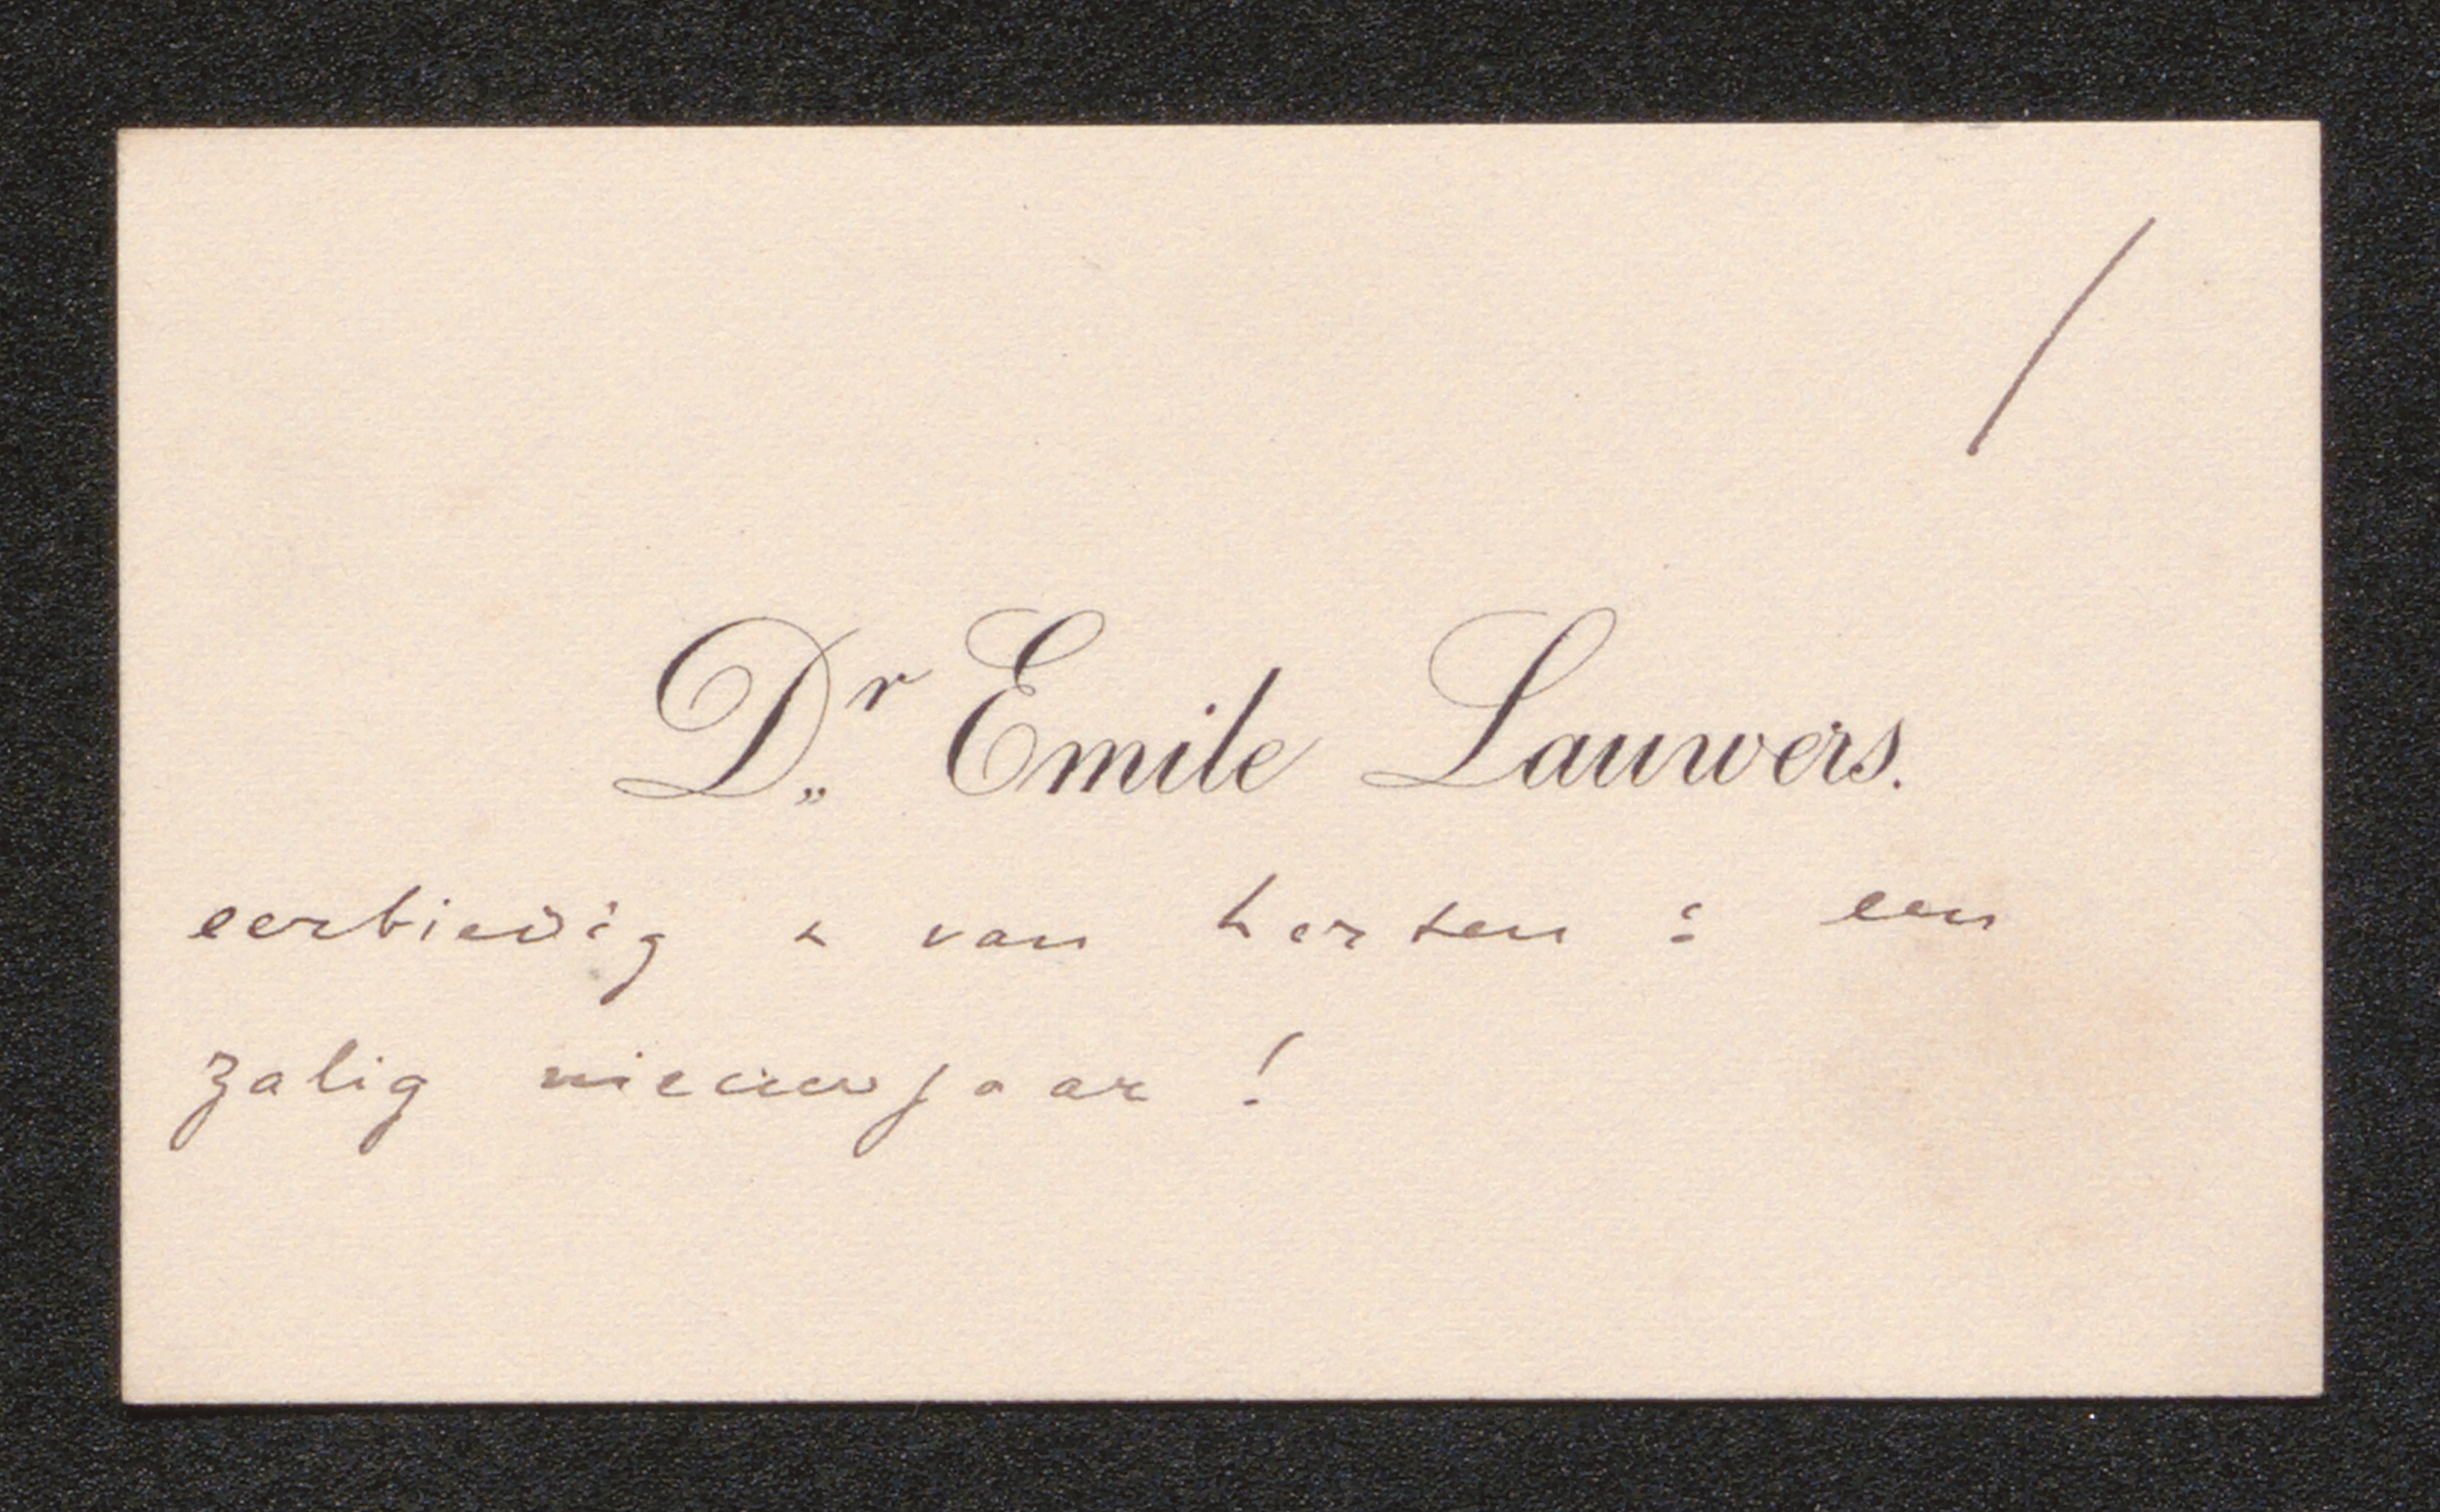 Dr Emile Lauwers.
eerbiedig & van herten : een
zalig nieuwjaar !